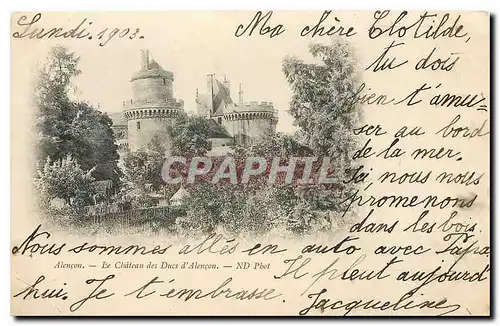 Lundi. 1903.
Ma chère Clotilde,
tu dois
bien t'amu-
ser au bord
de la mer.
Ici nous nous
promenons
dans les bois.
CPAPHIL
Nous sommes allés en auto avec Papa.
Alençon. - Le Château des Ducs d'Alençon. - ND Phot
Il pleut aujourd'
hui. Je t'embrasse.
Jacqueline